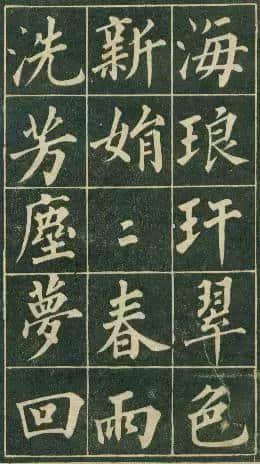 海琅玕翠色
新娟〻春雨
洗芳塵夢回